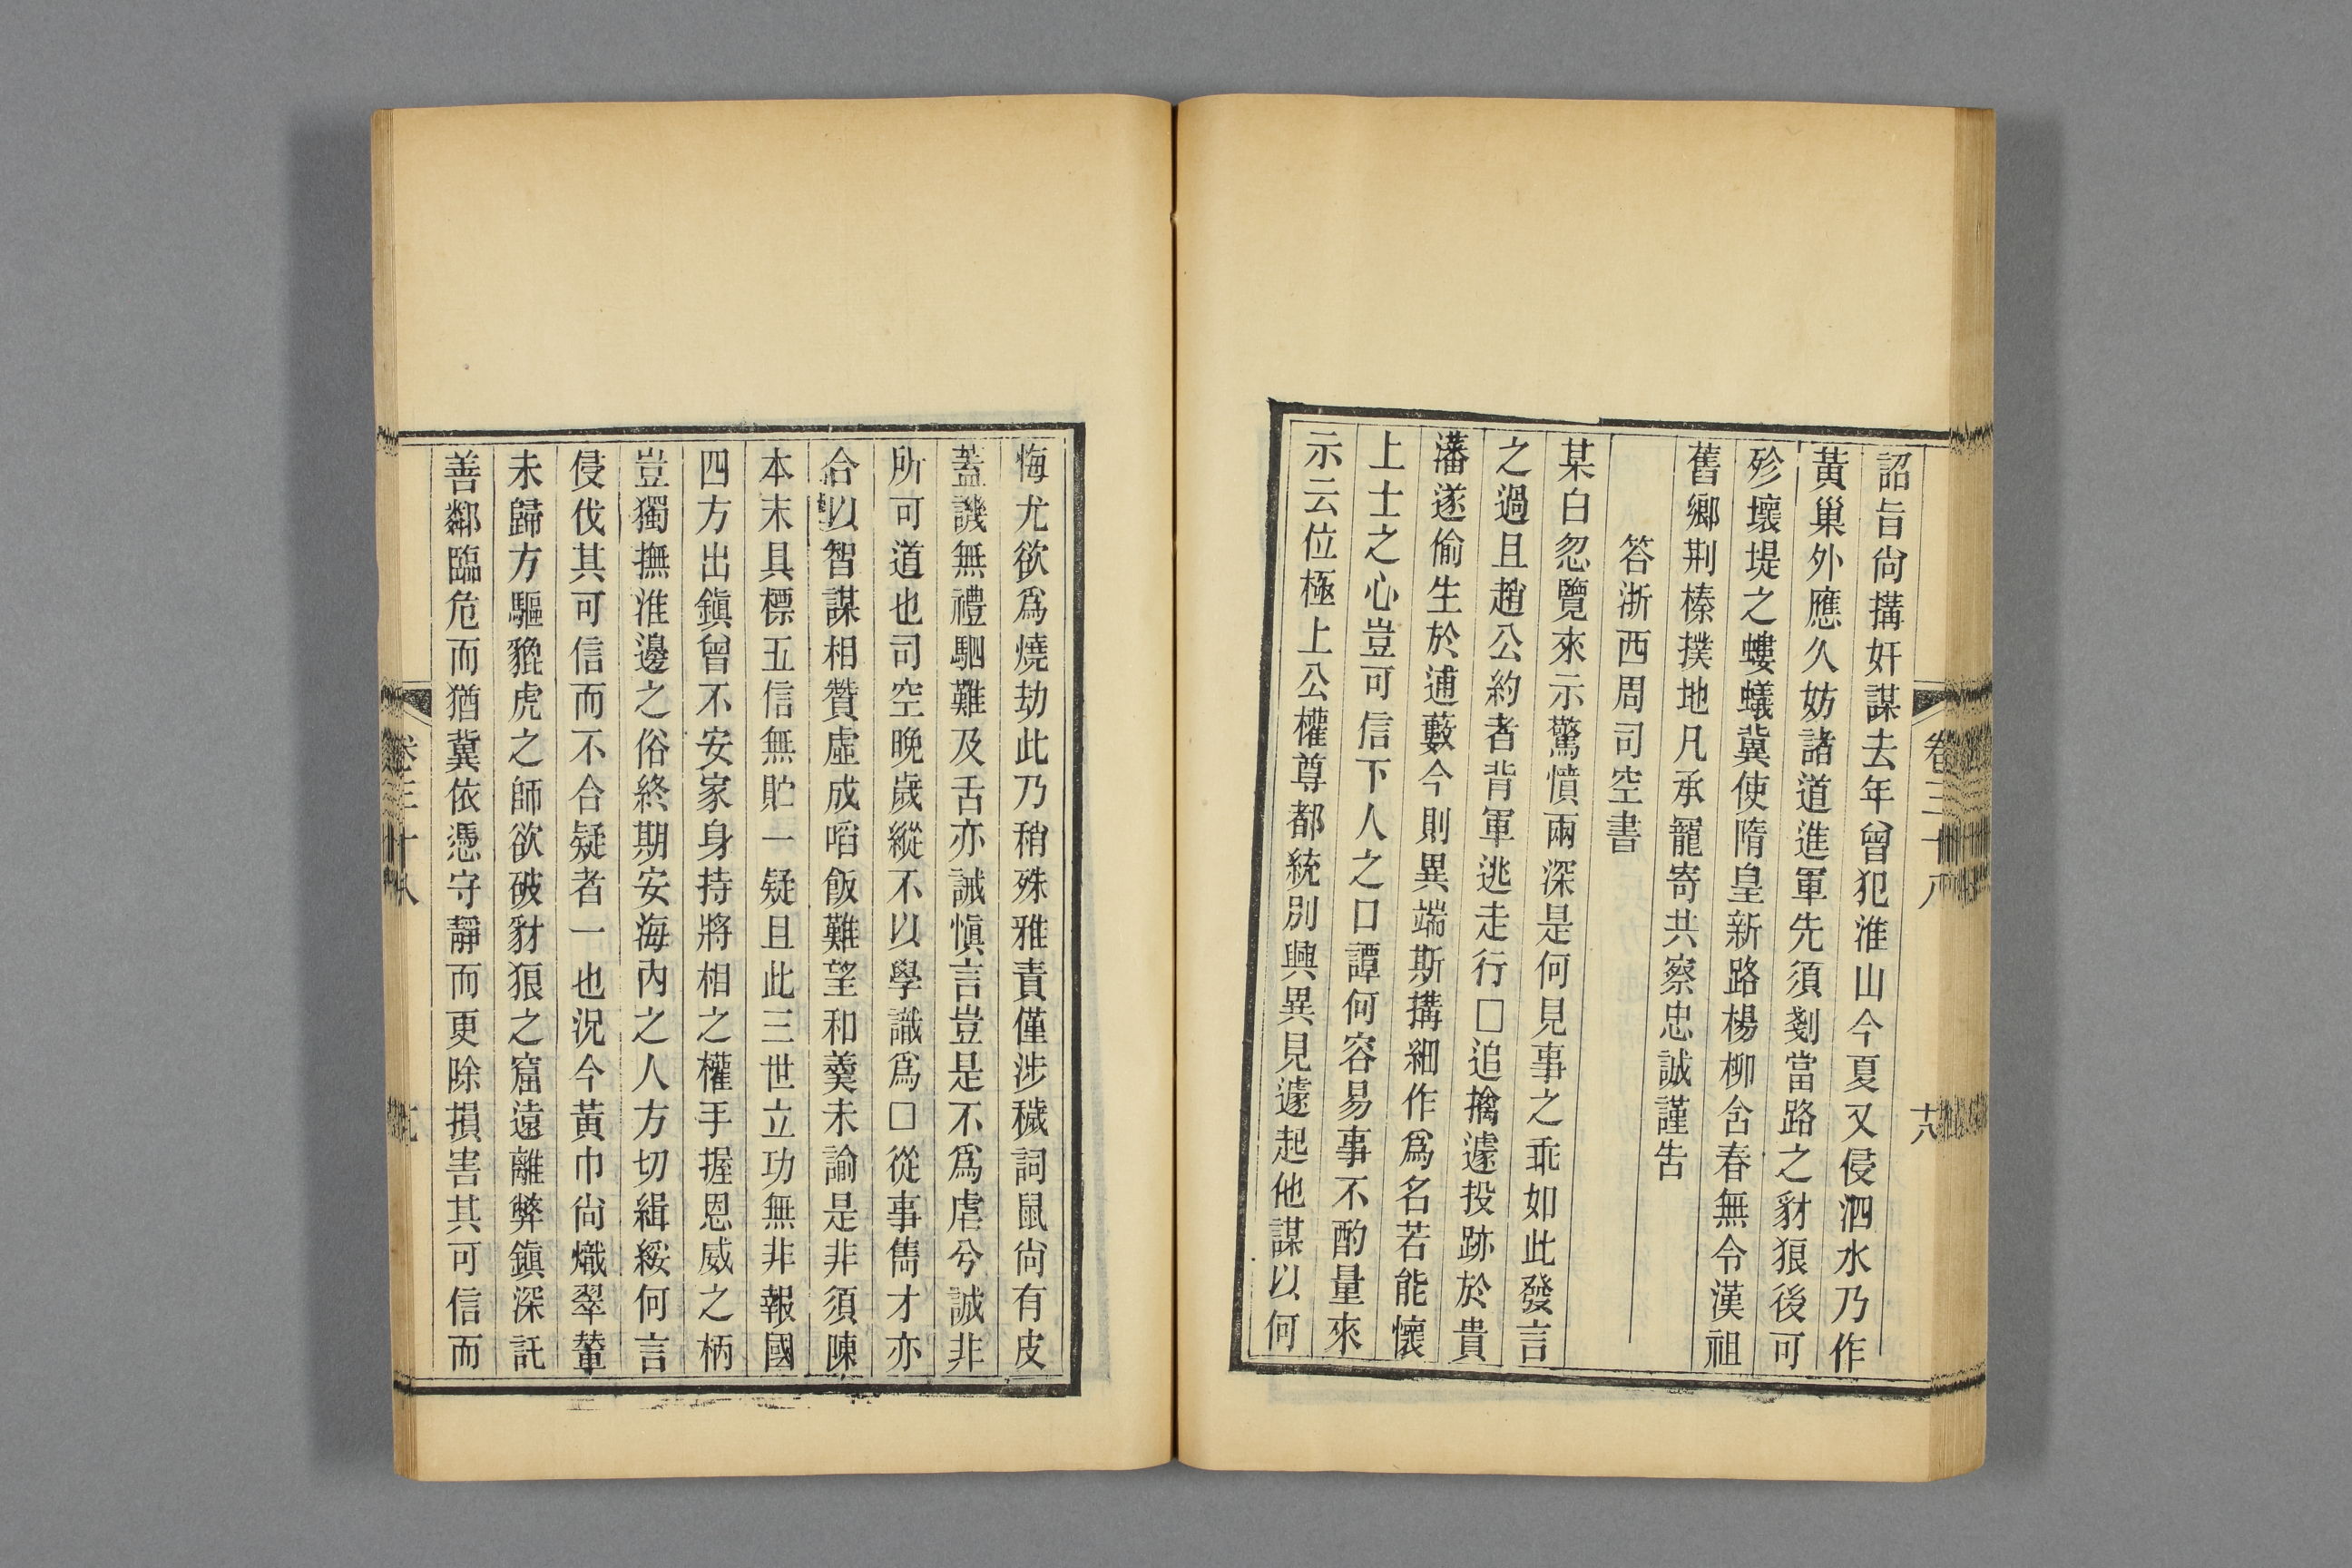 詔旨尙搆奸謀去年曾犯淮山今夏又侵泗水乃作
黃巢外應久妨諸道進軍先須剗當路之豺狼後可
殄壞堤之螻蟻冀使隋皇新路楊柳含春無令漢祖
舊鄉荆榛撲地凡承寵寄共察忠誠謹告
答浙西周司空書
某白忽覽來示驚憤兩深是何見事之乖如此發言
之過且趙公約者背軍逃走行□追擒遽投跡於貴
藩遂偷生於逋藪今則異端斯搆細作爲名若能懷
上士之心豈可信下人之口譚何容易事不酌量來
示云位極上公權尊都統別興異見遽起他謀以何
卷三十八
十八
悔尤欲爲燒劫此乃稍殊雅責僅涉穢詞鼠尙有皮
蓋譏無禮駟難及舌亦誡愼言豈是不爲虐兮誠非
所可道也司空晚歲縱不以學識爲□從事雋才亦
合以智謀相贊虛成㗖飯難望和羹未諭是非須陳
本末具標五信無貯一疑且此三世立功無非報國
四方出鎭曾不安家身持將相之權手握恩威之柄
豈獨撫淮邊之俗終期安海內之人方切緝綏何言
侵伐其可信而不合疑者一也況今黃巾尙熾翠輦
未歸方驅貔虎之師欲破豺狼之窟遠離弊鎭深託
善鄰臨危而猶冀依憑守靜而更除損害其可信而
卷三十八